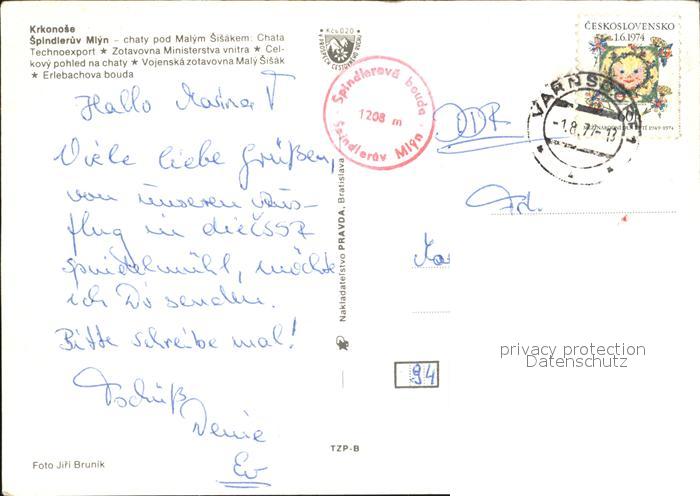 Krkonoše
Špindlerův Mlýn – chaty pod Malým Šišákem: Chata
Technoexport ★ Zotavovna Ministerstva vnitra ★ Cel-
kový pohled na chaty ★ Vojenská zotavovna Malý Šišák
★ Erlebachova bouda
Hallo Marina
Viele liebe Grüße,
von unseren Aus-
flug in die ČSSR
spindelmühl, möchte
ich Di senden.
Bitte schreibe mal!
Tschüß
Ev
Foto Jiří Bruník
Kčs 0,20
Špindlerova bouda
1208 m
Špindlerův Mlýn
Nakladatelstvo PRAVDA, Bratislava
TZP-B
ČESKOSLOVENSKO
1.6.1974
VARNSDORF 1
DDR
Frl.
94
privacy protection
Datenschutz